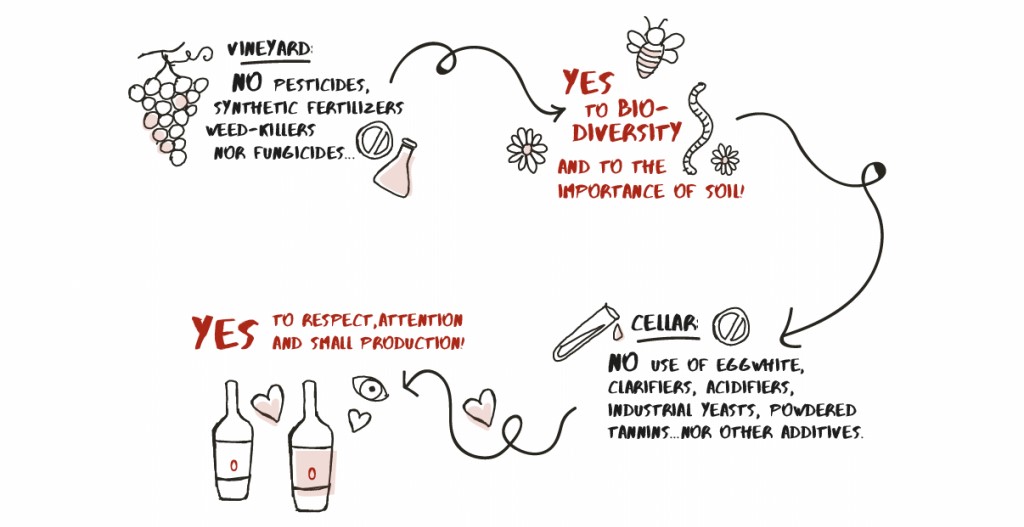 VINEYARD:
NO PESTICIDES,
SYNTHETIC FERTILIZERS
WEED-KILLERS
NOR FUNGICIDES...
YES
TO BIO-
DIVERSITY
AND TO THE
IMPORTANCE OF SOIL!
CELLAR:
NO USE OF EGGWHITE,
CLARIFIERS, ACIDIFIERS,
INDUSTRIAL YEASTS, POWDERED
TANNINS...NOR OTHER ADDITIVES.
YES TO RESPECT, ATTENTION
AND SMALL PRODUCTION!
0
0